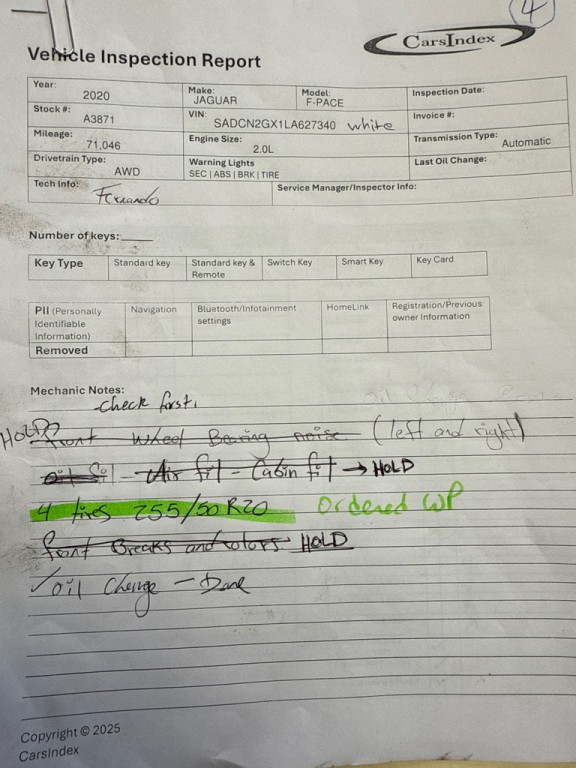 4
CarsIndex
Vehicle Inspection Report
Year: 2020 Make: JAGUAR Model: F-PACE Inspection Date:
Stock #: A3871 VIN: SADCN2GX1LA627340 white Invoice #:
Mileage: 71,046 Engine Size: 2.0L Transmission Type: Automatic
Drivetrain Type: AWD Warning Lights SEC | ABS | BRK | TIRE Last Oil Change:
Tech Info: Fernando Service Manager/Inspector Info:
Number of keys:
Key Type Standard key Standard key & Remote Switch Key Smart Key Key Card
PII (Personally Identifiable Information) Navigation Bluetooth/Infotainment settings HomeLink Registration/Previous owner Information
Removed
Mechanic Notes:
check first.
HOLD? front Wheel Bearing noise (left and right)
oil fil - Air fil - Cabin fil → HOLD
4 tires 255/50 R20 Ordered WP
front Breaks and rotors HOLD
✓oil Change - Done
Copyright © 2025
CarsIndex